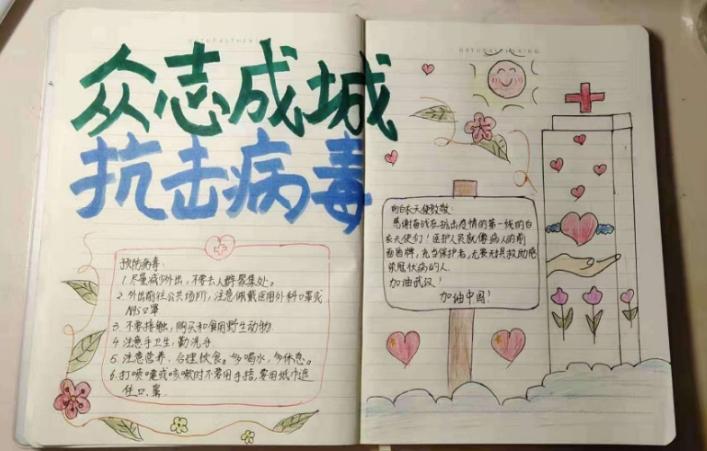 众志成城
抗击病毒
预防病毒:
1.尽量减少外出,不要去人群聚集处。
2.外出前往公共场所,注意佩戴医用外科口罩或
N95口罩
3.不要接触,购买和食用野生动物.
4.注意手卫生,勤洗手.
5.注意营养,合理饮食。多喝水,多休息。
6.打喷嚏或咳嗽时不要用手捂,要用纸巾遮
住口、鼻.
向白衣天使致敬:
感谢奋战在抗击疫情的第一线的白
衣天使们!医护人员就像病人的前
面盾牌,充当保护者,无畏无惧救助感
染冠状病的人.
加油武汉!
加油中国!